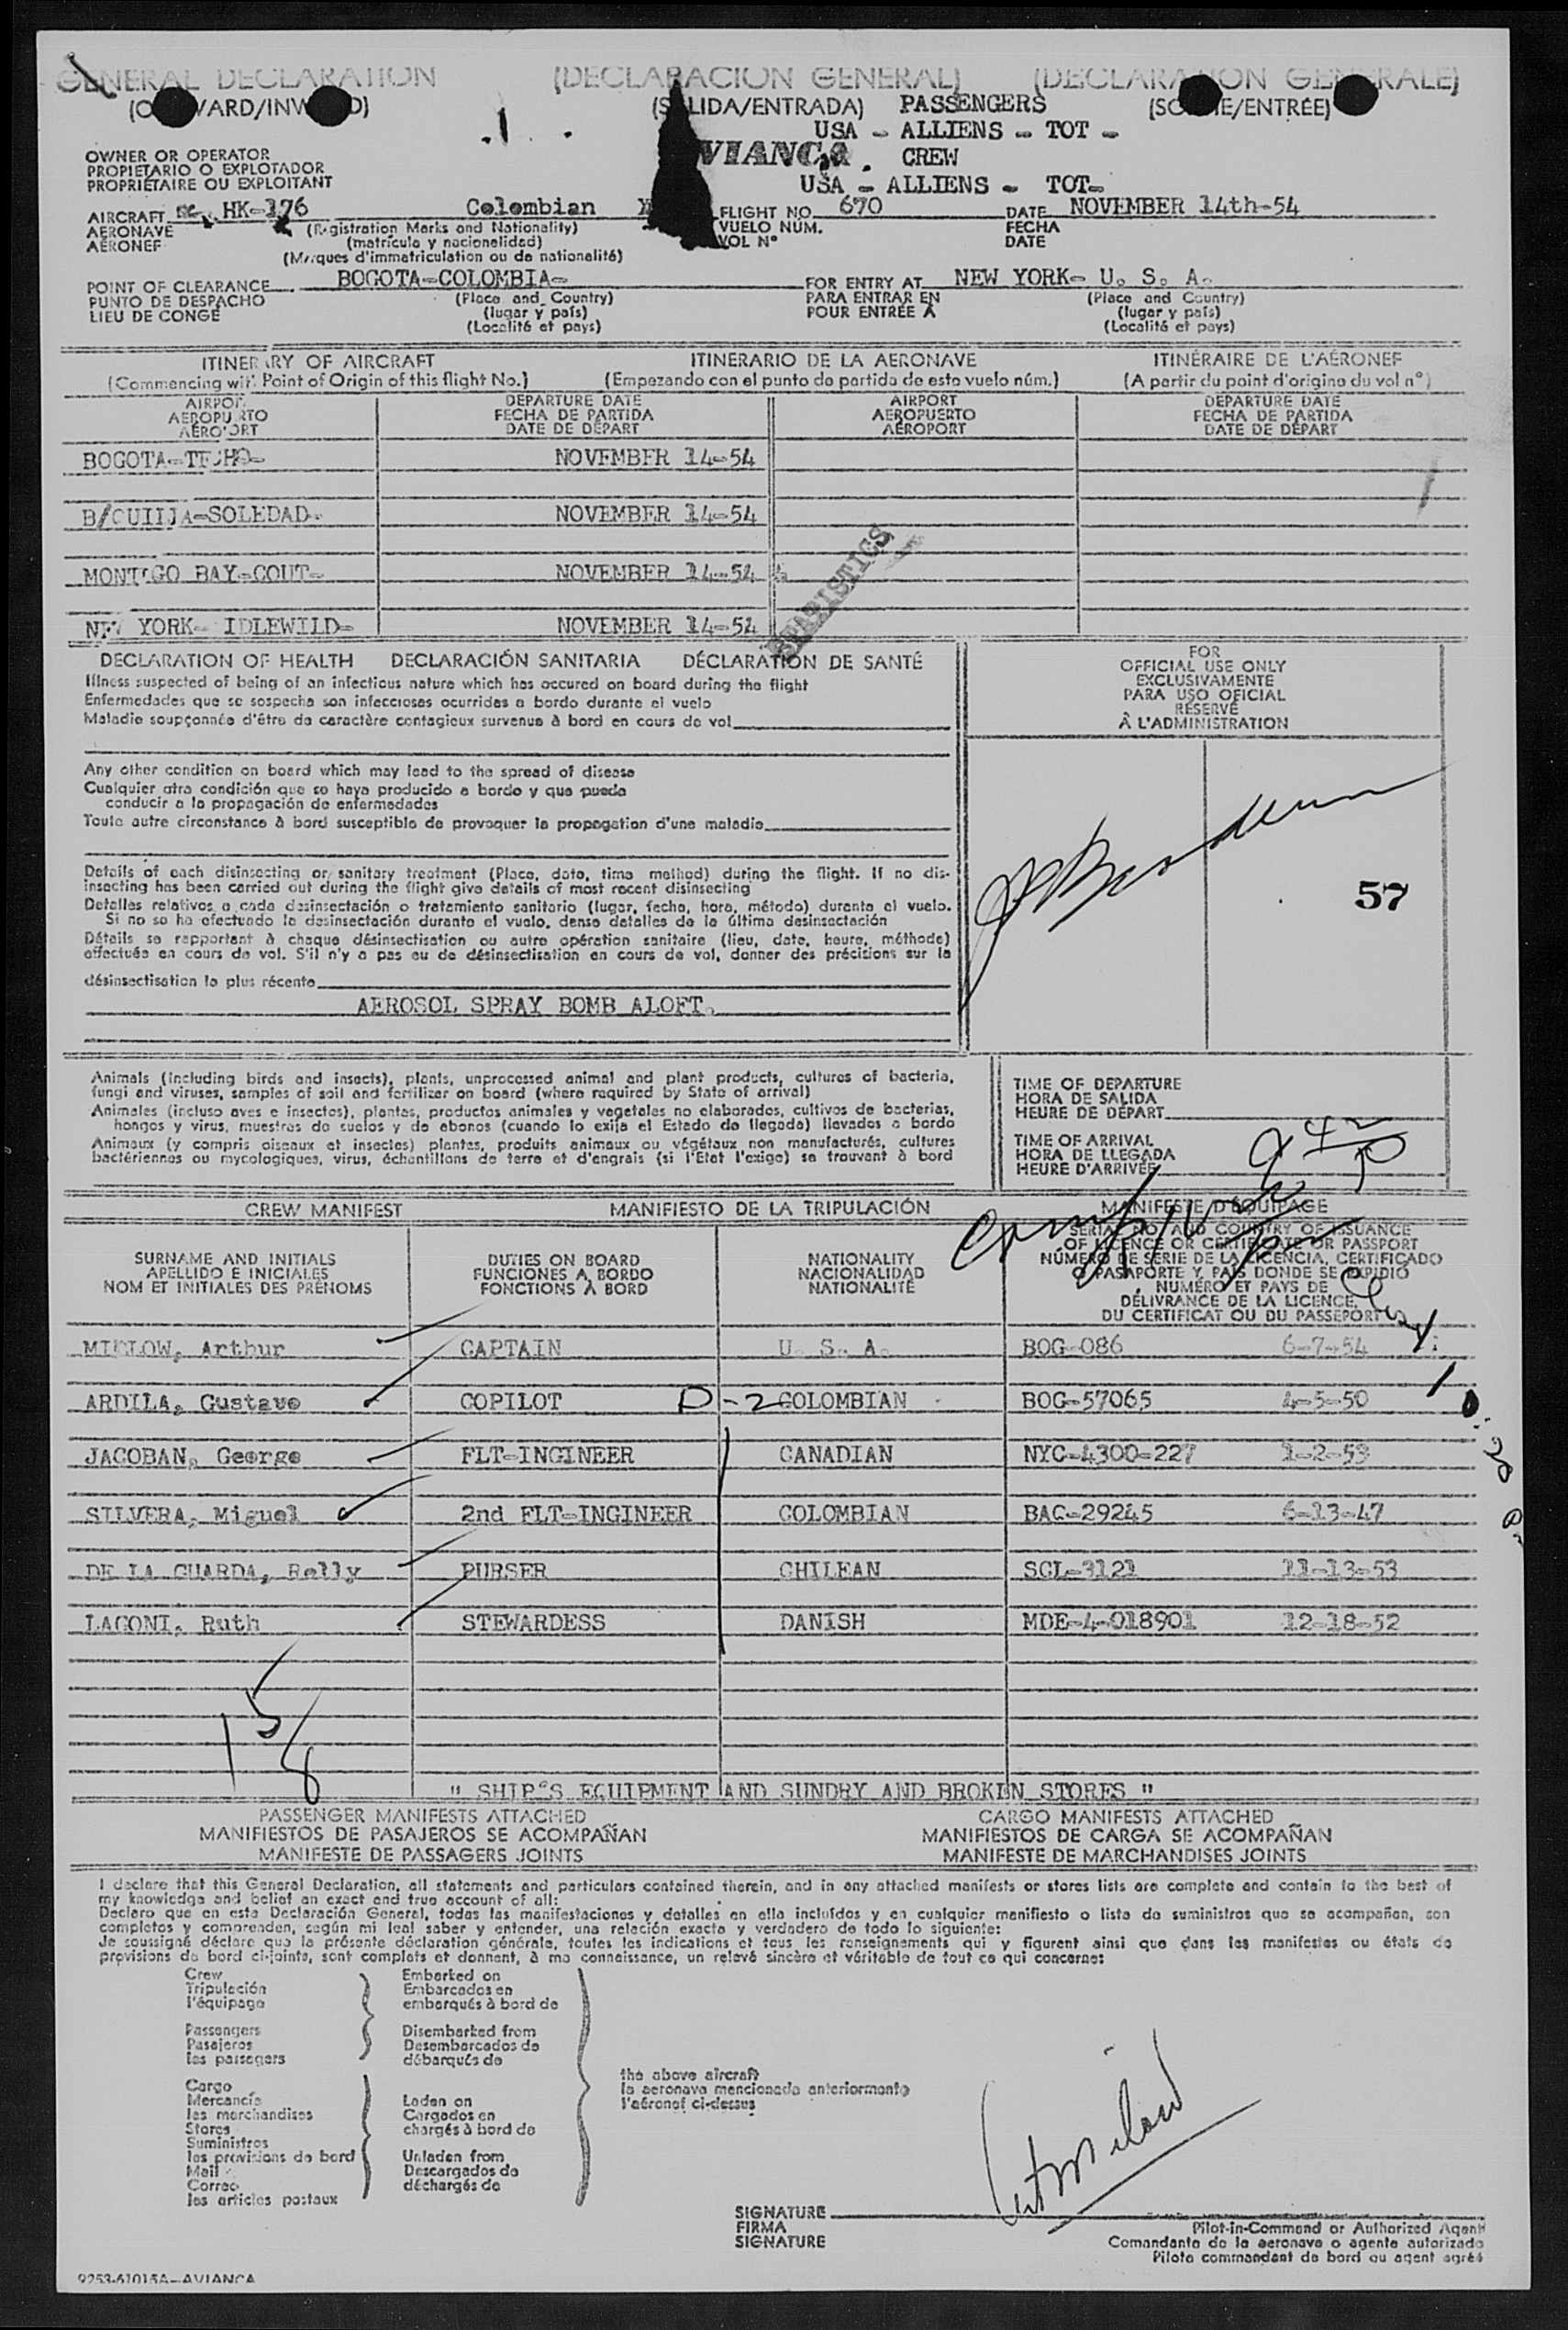 GENERAL DECLARATION (DECLARACION GENERAL) (DECLARATION GENERALE)
(O ARD/INW D) (SALIDA/ENTRADA) PASSENGERS (SO IE/ENTRÉE)
USA - ALLIENS - TOT -
OWNER OR OPERATOR
PROPIETARIO O EXPLOTADOR
PROPRIÉTAIRE OU EXPLOITANT
VIANCA CREW
USA - ALLIENS - TOT-
AIRCRAFT HK-176 Colombian FLIGHT NO. 670 DATE NOVEMBER 14th-54
AERONAVE (Registration Marks and Nationality) VUELO NÚM. FECHA
AÉRONEF (matrícula y nacionalidad) VOL N° DATE
(Marques d'immatriculation ou de nationalité)
POINT OF CLEARANCE BOGOTA-COLOMBIA- FOR ENTRY AT NEW YORK- U. S. A.
PUNTO DE DESPACHO (Place and Country) PARA ENTRAR EN (Place and Country)
LIEU DE CONGÉ (lugar y país) POUR ENTRÉE À (lugar y país)
(Localité et pays) (Localité et pays)
ITINERARY OF AIRCRAFT ITINERARIO DE LA AERONAVE ITINÉRAIRE DE L'AÉRONEF
(Commencing with Point of Origin of this flight No.) (Empezando con el punto de partida de este vuelo núm.) (A partir du point d'origine du vol n°)
AIRPORT DEPARTURE DATE AIRPORT DEPARTURE DATE
AEROPUERTO FECHA DE PARTIDA AEROPUERTO FECHA DE PARTIDA
AÉROPORT DATE DE DÉPART AÉROPORT DATE DE DÉPART
BOGOTA-TECHO- NOVEMBER 14-54
B/QUILLA-SOLEDAD- NOVEMBER 14-54
MONTEGO BAY-COUT- NOVEMBER 14-54
NEW YORK- IDLEWILD- NOVEMBER 14-54
STATISTICS
DECLARATION OF HEALTH DECLARACIÓN SANITARIA DÉCLARATION DE SANTÉ
Illness suspected of being of an infectious nature which has occured on board during the flight
Enfermedades que se sospecha son infecciosas ocurridas a bordo durante el vuelo
Maladie soupçonnée d'être de caractère contagieux survenue à bord en cours de vol
FOR
OFFICIAL USE ONLY
EXCLUSIVAMENTE
PARA USO OFICIAL
RÉSERVÉ
À L'ADMINISTRATION
Any other condition on board which may lead to the spread of disease
Cualquier otra condición que se haya producido a bordo y que pueda
conducir a la propagación de enfermedades
Toute autre circonstance à bord susceptible de provoquer la propagation d'une maladie
57
Details of each disinsecting or sanitary treatment (Place, date, time method) during the flight. If no dis-
insecting has been carried out during the flight give details of most recent disinsecting
Detalles relativos a cada desinsectación o tratamiento sanitario (lugar, fecha, hora, método) durante el vuelo.
Si no se ha efectuado la desinsectación durante el vuelo, dense detalles de la última desinsectación
Détails se rapportant à chaque désinsectisation ou autre opération sanitaire (lieu, date, heure, méthode)
effectuée en cours de vol. S'il n'y a pas eu de désinsectisation en cours de vol, donner des précisions sur la
désinsectisation la plus récente
AEROSOL SPRAY BOMB ALOFT.
Animals (including birds and insects), plants, unprocessed animal and plant products, cultures of bacteria,
fungi and viruses, samples of soil and fertilizer on board (where required by State of arrival)
Animales (incluso aves e insectos), plantas, productos animales y vegetales no elaborados, cultivos de bacterias,
hongos y virus, muestras de suelos y de abonos (cuando lo exija el Estado de llegada) llevados a bordo
Animaux (y compris oiseaux et insectes) plantes, produits animaux ou végétaux non manufacturés, cultures
bactériennes ou mycologiques, virus, échantillons de terre et d'engrais (si l'Etat l'exige) se trouvant à bord
TIME OF DEPARTURE
HORA DE SALIDA
HEURE DE DÉPART
TIME OF ARRIVAL
HORA DE LLEGADA
HEURE D'ARRIVÉE
CREW MANIFEST MANIFIESTO DE LA TRIPULACIÓN MANIFESTE D'ÉQUIPAGE
SURNAME AND INITIALS
APELLIDO E INICIALES
NOM ET INITIALES DES PRÉNOMS
DUTIES ON BOARD
FUNCIONES A BORDO
FONCTIONS À BORD
NATIONALITY
NACIONALIDAD
NATIONALITÉ
SERIAL NO. AND COUNTRY OF ISSUANCE
OF LICENCE OR CERTIFICATE OR PASSPORT
NÚMERO DE SERIE DE LA LICENCIA, CERTIFICADO
O PASAPORTE Y PAÍS DONDE SE EXPIDIÓ
NUMÉRO ET PAYS DE
DÉLIVRANCE DE LA LICENCE,
DU CERTIFICAT OU DU PASSEPORT
MILLOW, Arthur CAPTAIN U. S. A. BOG-086 6-7-54
ARDILA, Gustavo COPILOT D-2 COLOMBIAN BOG-57065 4-5-50
JACOBAN, George FLT-INGINEER CANADIAN NYC-4300-227 1-2-53
SILVERA, Miguel 2nd FLT-INGINEER COLOMBIAN BAQ-29245 6-13-47
DE LA GUARDA, Relly PURSER CHILEAN SCL-3121 11-13-53
LAGONI, Ruth STEWARDESS DANISH MDE-4-018901 12-18-52
" SHIP'S EQUIPMENT AND SUNDRY AND BROKEN STORES "
PASSENGER MANIFESTS ATTACHED CARGO MANIFESTS ATTACHED
MANIFIESTOS DE PASAJEROS SE ACOMPAÑAN MANIFIESTOS DE CARGA SE ACOMPAÑAN
MANIFESTE DE PASSAGERS JOINTS MANIFESTE DE MARCHANDISES JOINTS
I declare that this General Declaration, all statements and particulars contained therein, and in any attached manifests or stores lists are complete and contain to the best of
my knowledge and belief an exact and true account of all:
Declaro que en esta Declaración General, todas las manifestaciones y detalles en ella incluídos y en cualquier manifiesto o lista de suministros que se acompañan, son
completos y comprenden, según mi leal saber y entender, una relación exacta y verdadera de todo lo siguiente:
Je soussigné déclare que la présente déclaration générale, toutes les indications et tous les renseignements qui y figurent ainsi que dans les manifestes ou états de
provisions de bord ci-joints, sont complets et donnent, à ma connaissance, un relevé sincère et véritable de tout ce qui concerne:
Crew Embarked on
Tripulación Embarcados en
l'équipage embarqués à bord de
Passengers Disembarked from
Pasajeros Desembarcados de
les passagers débarqués de
the above aircraft
la aeronave mencionada anteriormente
l'aéronef ci-dessus
Cargo
Mercancía Laden on
les marchandises Cargados en
Stores chargés à bord de
Suministros
les provisions de bord Unladen from
Mail Descargados de
Correo déchargés de
les articles postaux
SIGNATURE
FIRMA
SIGNATURE
Pilot-in-Command or Authorized Agent
Comandante de la aeronave o agente autorizado
Pilote commandant de bord ou agent agréé
9253-61015A-AVIANCA